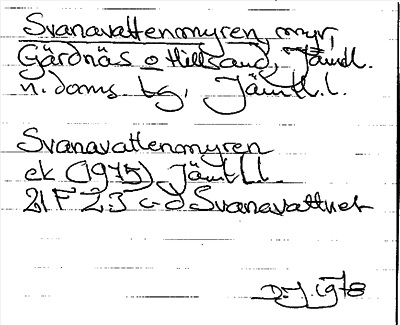 Svanavattenmyren, myr,
Gärdnäs o Hillsand, Jämtl.
n. doms tg, Jämtl. l.
Svanavattenmyren
ek (1975) Jämtl l.
21F 2 J c-d Svanavattnet
D.J. 1978